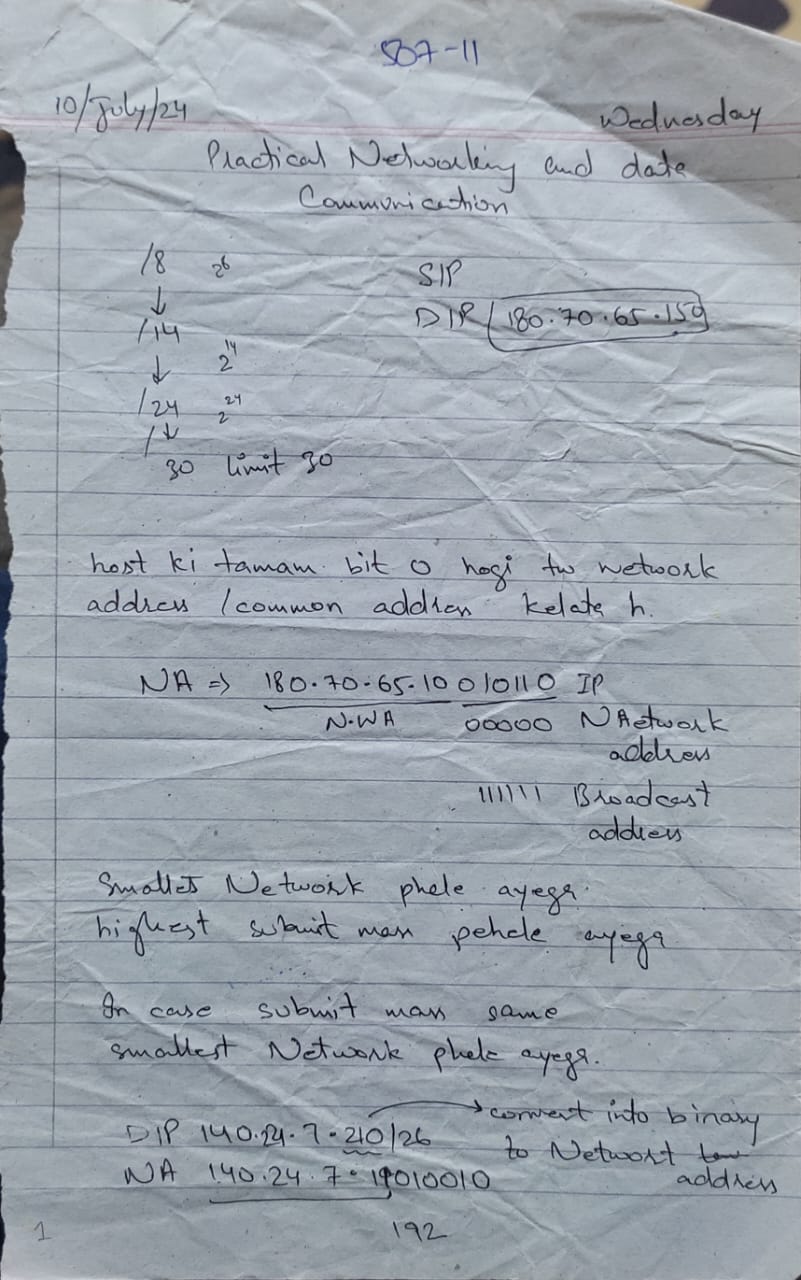 S07-11
10/July/24 Wednesday
Practical Networking and date
Communication
/8 2⁶
↓
/14
↓ 2¹⁴
/24 2²⁴
/↓
30 limit 30
SIP
DIP / 180.70.65.150
host ki tamam bit 0 hogi tw network
address / common addren kelata h.
NA => 180.70.65.10 010110 IP
N.WA 00000 NAetwork
address
111111 Broadcast
address
Smallets Network phele ayega.
highest submit man pehele ayega
In case submit man same
smallest Network phele ayega.
DIP 140.24.7.210/26 → convert into binary
to Networt
NA 140.24.7.11010010 address
192
1